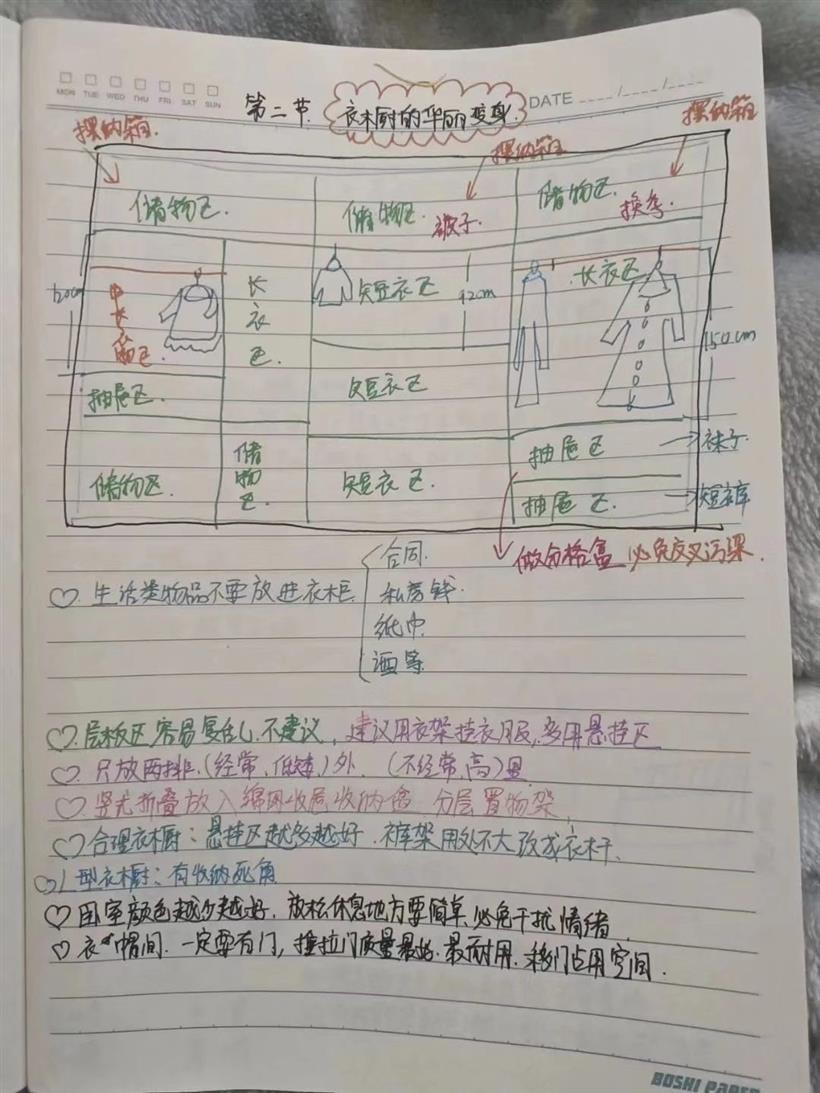 MON TUE WED THU FRI SAT SUN
DATE
第二节. 衣橱的华丽变身.
摆纳箱.
摆纳箱
摆纳箱
储物区.
储物区. 被子.
储物区. 换季.
120cm
中长
长衣区.
短衣区
92cm
长衣区
150cm
抽屉区.
短衣区
储物区.
储物区.
短衣区.
抽屉区 → 袜子.
抽屉区. → 短裤
做分格盒 必免交叉污染.
♡. 生活类物品不要放进衣柜
合同.
私房钱.
纸巾.
酒等.
♡. 层板区容易复乱.不建议, 建议用衣架挂衣服,多用悬挂区
♡. 只放两排.(经常,低矮)外. (不经常,高)里
♡ 竖式折叠放入 分层置物架,
♡ 合理衣橱: 悬挂区越多越好. 裤架用处不大改成衣杆.
♡ L型衣橱: 有收纳死角
♡ 卧室颜色越少越好. 放松休息地方要简单.必免干扰情绪.
♡ 衣帽间. 一定要有门, 推拉门质量最好.最耐用. 移门占用空间.
BOSHI PAPER